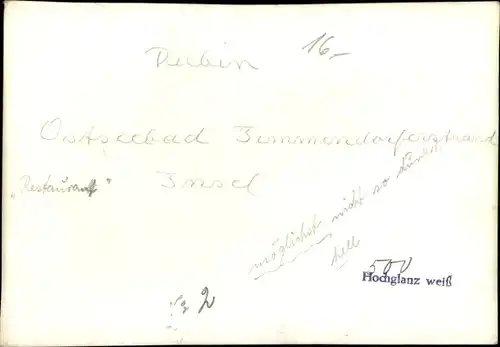 16,-
Ostseebad Timmendorferstrand
"Restaurant" Insel
möglichst nicht so dunkel
hell
500
Hochglanz weiß
2